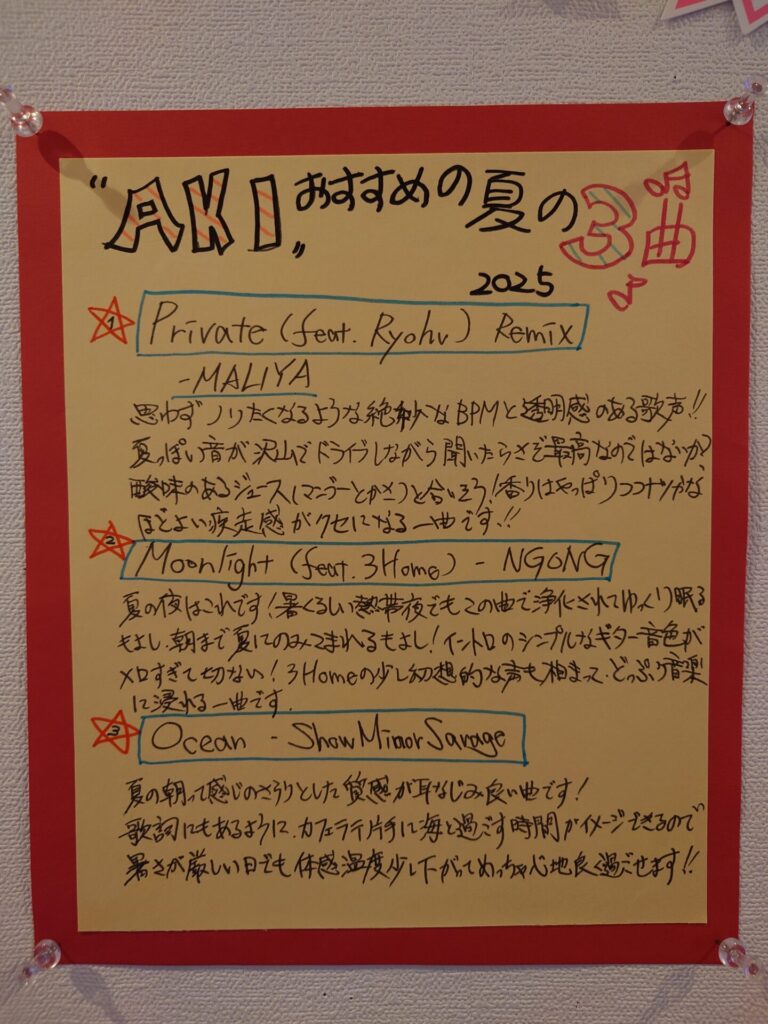 “AKI„おすすめの夏の3曲
2025
1 Private (feat. Ryohu) Remix
-MALIYA
思わずノリたくなるような絶妙なBPMと透明感のある歌声!!
夏っぽい音が沢山でドライブしながら聞いたらさぞ最高なのではないか?
酸味のあるジュース(マンゴーとかさ)と合いそう!香りはやっぱりココナツかな、
ほどよい疾走感がクセになる一曲です!!
2 Moonlight (feat. 3Home) - NGONG
夏の夜はこれです!暑くるしい熱帯夜でもこの曲で浄化されてゆっくり眠る
もよし、朝まで夏にのみこまれるもよし!イントロのシンプルなギター音色が
メロすぎて切ない!3Homeの少し幻想的な声も相まって、どっぷり音楽
に浸れる一曲です.
3 Ocean - ShowMinorSavage
夏の朝って感じのさらりとした質感が耳なじみ良い曲です!
歌詞にもあるように、カフェラテ片手に海と過ごす時間がイメージできるので
暑さが厳しい日でも体感温度少し下がってめっちゃ心地良く過ごせます!!